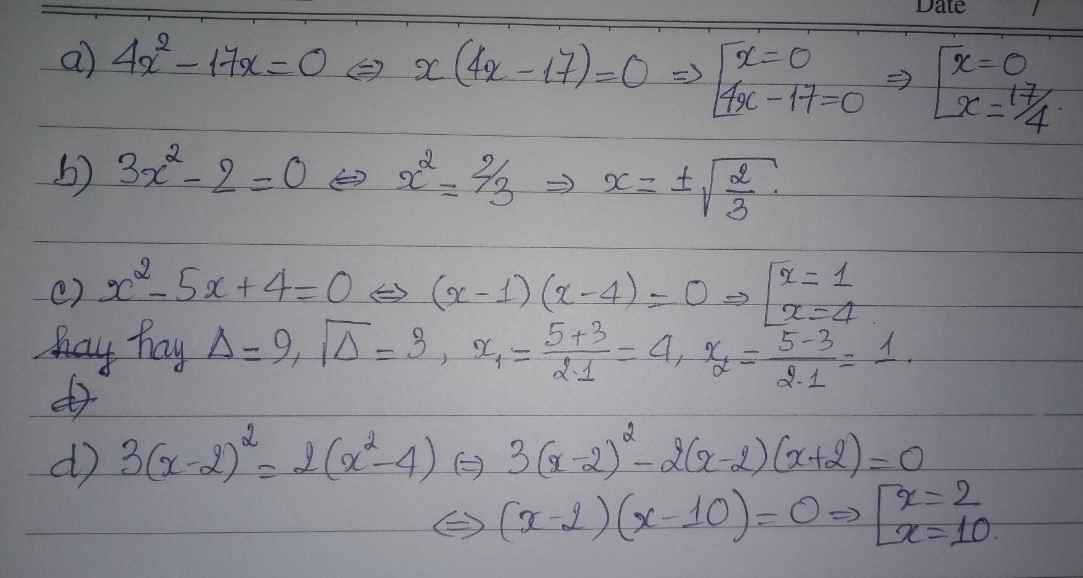 Date /
a) 4x² - 17x = 0 ⇔ x(4x - 17) = 0 ⇒ [x = 0 ⇒ [x = 0
4x - 17 = 0 x = 17/4.
b) 3x² - 2 = 0 ⇔ x² = 2/3 ⇒ x = ±√(2/3).
c) x² - 5x + 4 = 0 ⇔ (x - 1)(x - 4) = 0 ⇒ [x = 1
x = 4.
hay hay Δ = 9, √Δ = 3, x₁ = (5+3)/(2·1) = 4, x₂ = (5-3)/(2·1) = 1.
d)
d) 3(x-2)² = 2(x²-4) ⇔ 3(x-2)² - 2(x-2)(x+2) = 0
⇔ (x-2)(x-10) = 0 ⇒ [x = 2
x = 10.